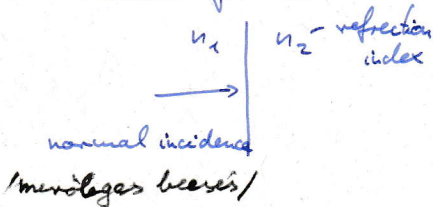 n₁ n₂ - refrection
index
normal incidence
/merőleges beesés/